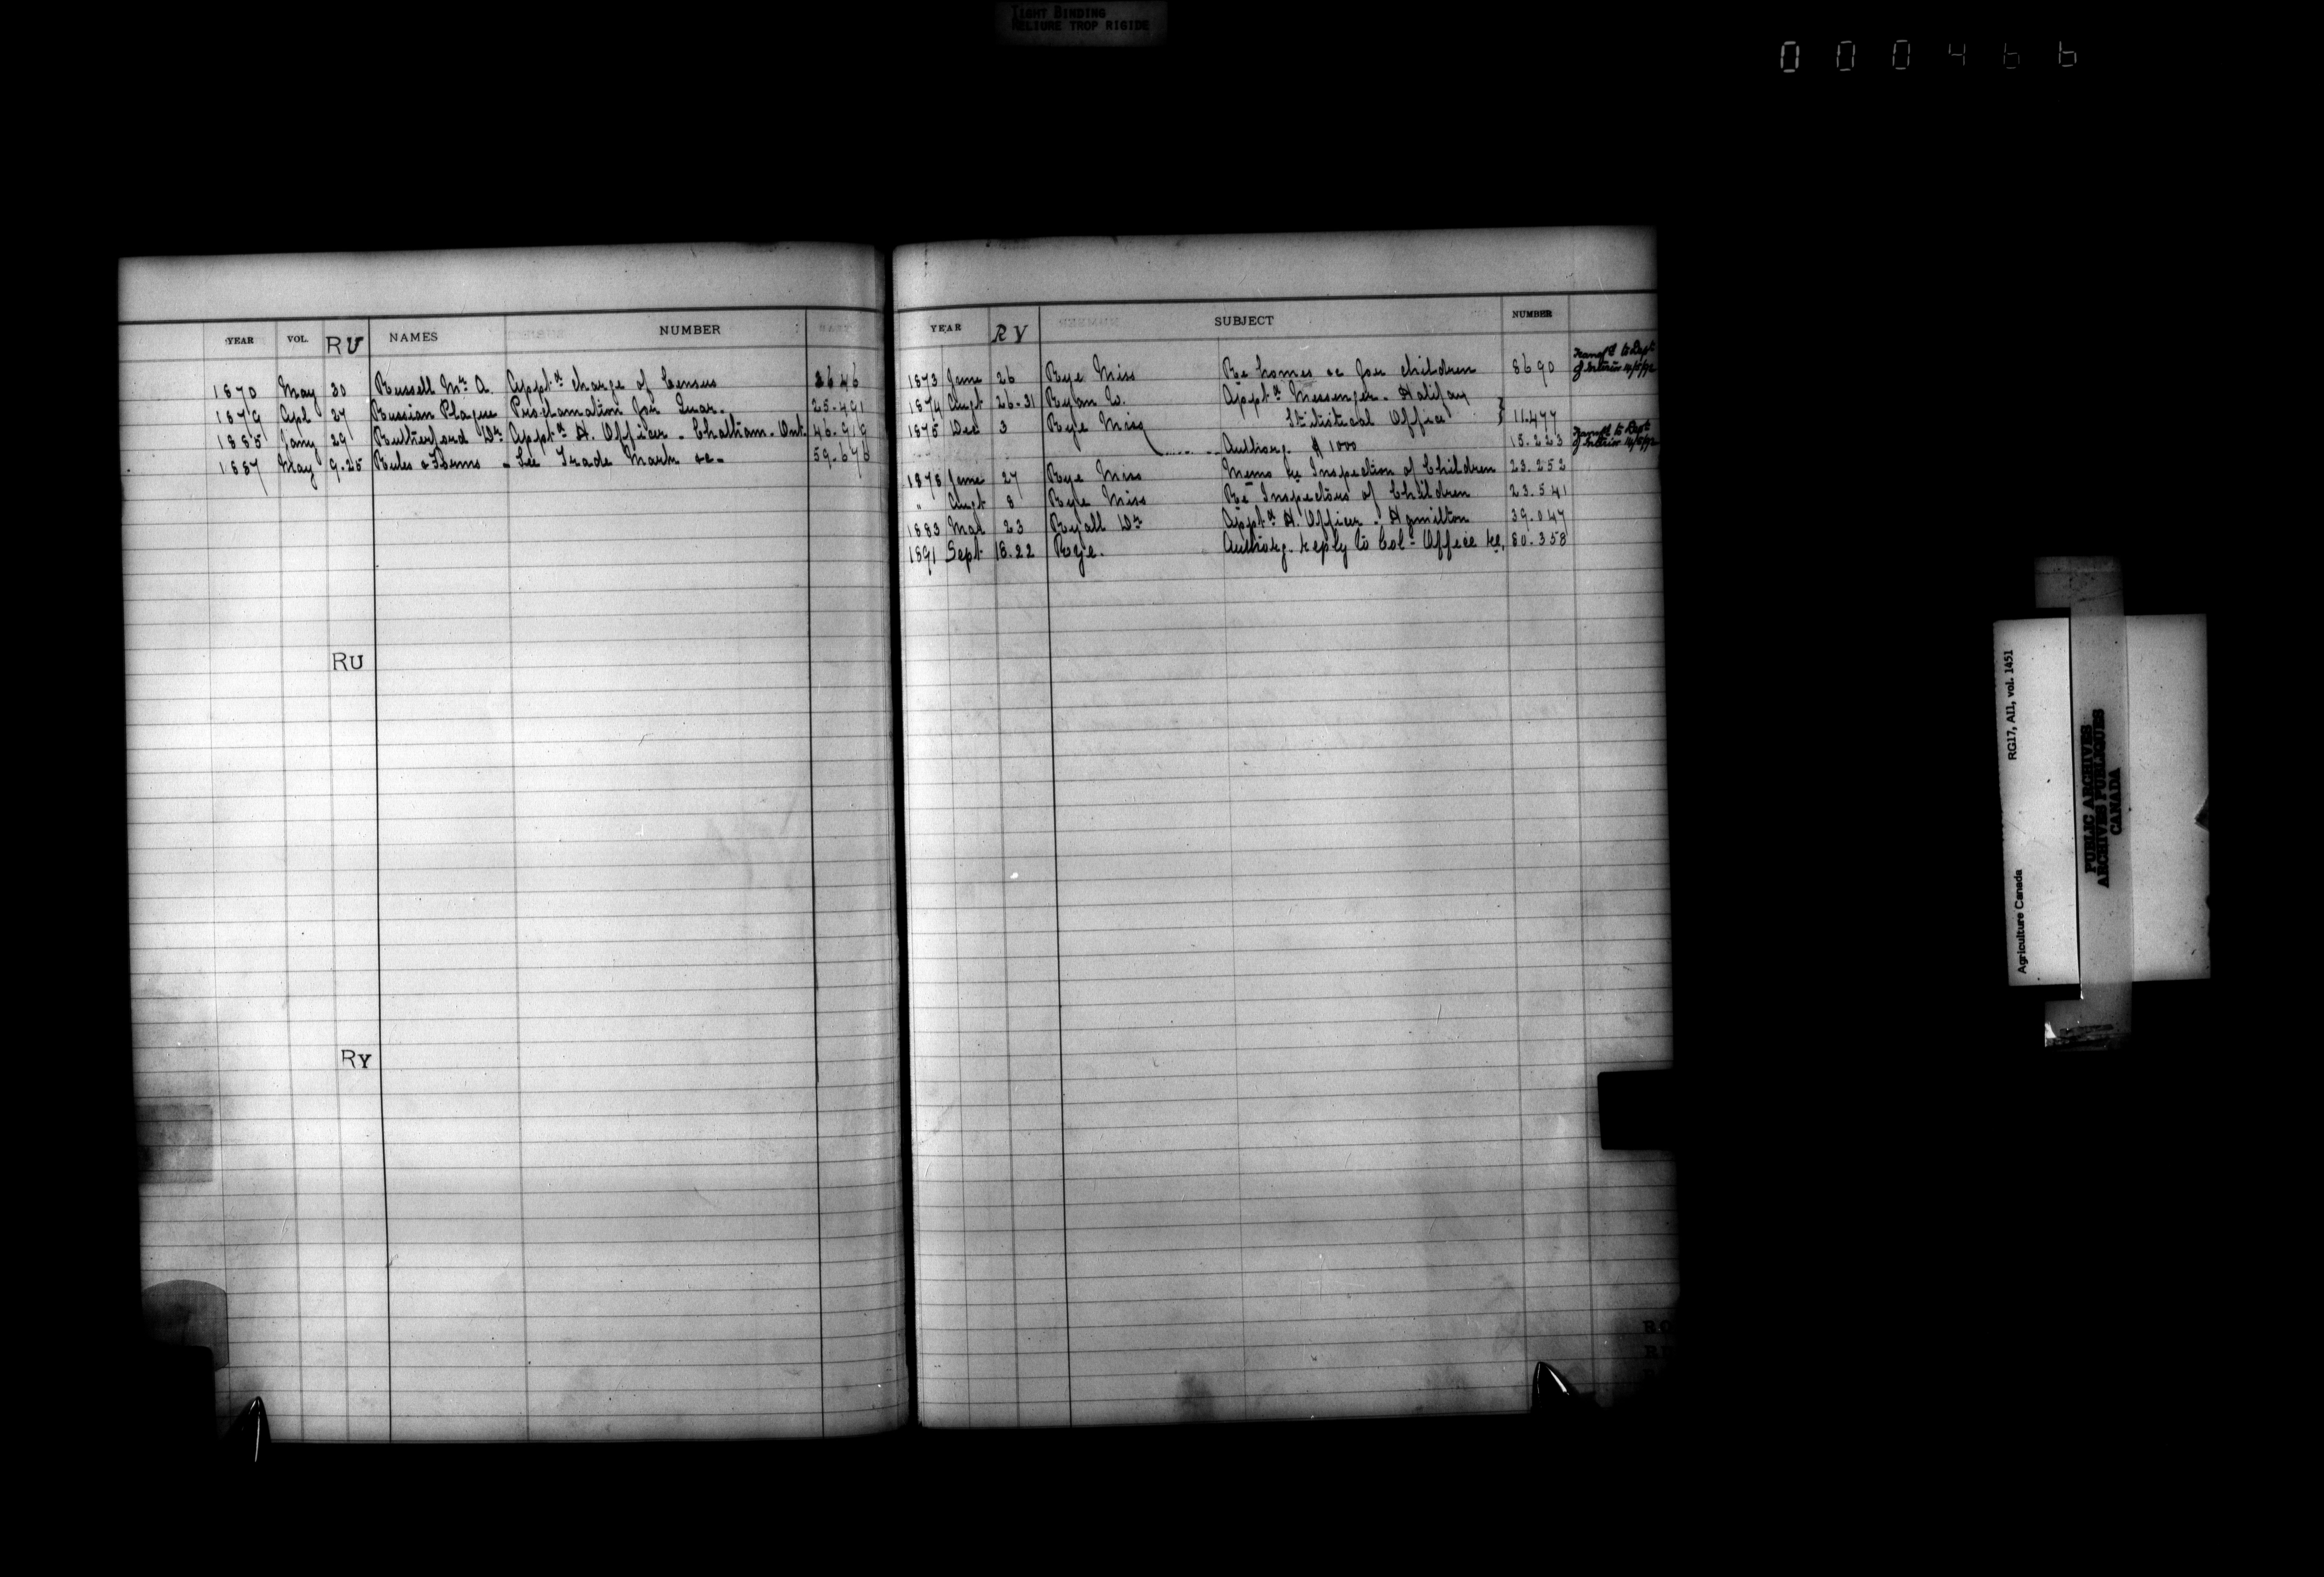 TIGHT BINDING
RELIURE TROP RIGIDE
000466
YEAR VOL. RU NAMES NUMBER
1870 May 30 Russell Mr. A. Appt. charge of Census 2646
1879 Apl 27 Russian Plague Proclamation for Quar. 25.491
1885 Jany 29 Rutherford Dr. Appt. H. Officer - Chatham Ont. 46.919
1887 May 9.25 Rules & Forms - See Trade Marks &c - 59.676
RU
RY
YEAR RY SUBJECT NUMBER
1873 June 26 Rye Miss Re homes &c for children 8690 Transfd to Dept of Interior
1874 Augt 26-31 Ryan W. Appt. Messenger - Halifax
Statistical Office } 11.477
1875 Dec 3 Rye Miss Authorg. $1000 15.223 Transfd to Dept of Interior
1878 June 27 Rye Miss Memo re Inspection of Children 23.252
" Augt 8 Rye Miss Re Inspectors of Children 23.541
1883 Mar 23 Ryall Dr. Appt. H. Officer - Hamilton 39.047
1891 Sept 18.22 Rye. Authorg. reply to Col. Office re. 80.358
Agriculture Canada RG17, AII, vol. 1451
PUBLIC ARCHIVES
ARCHIVES PUBLIQUES
CANADA